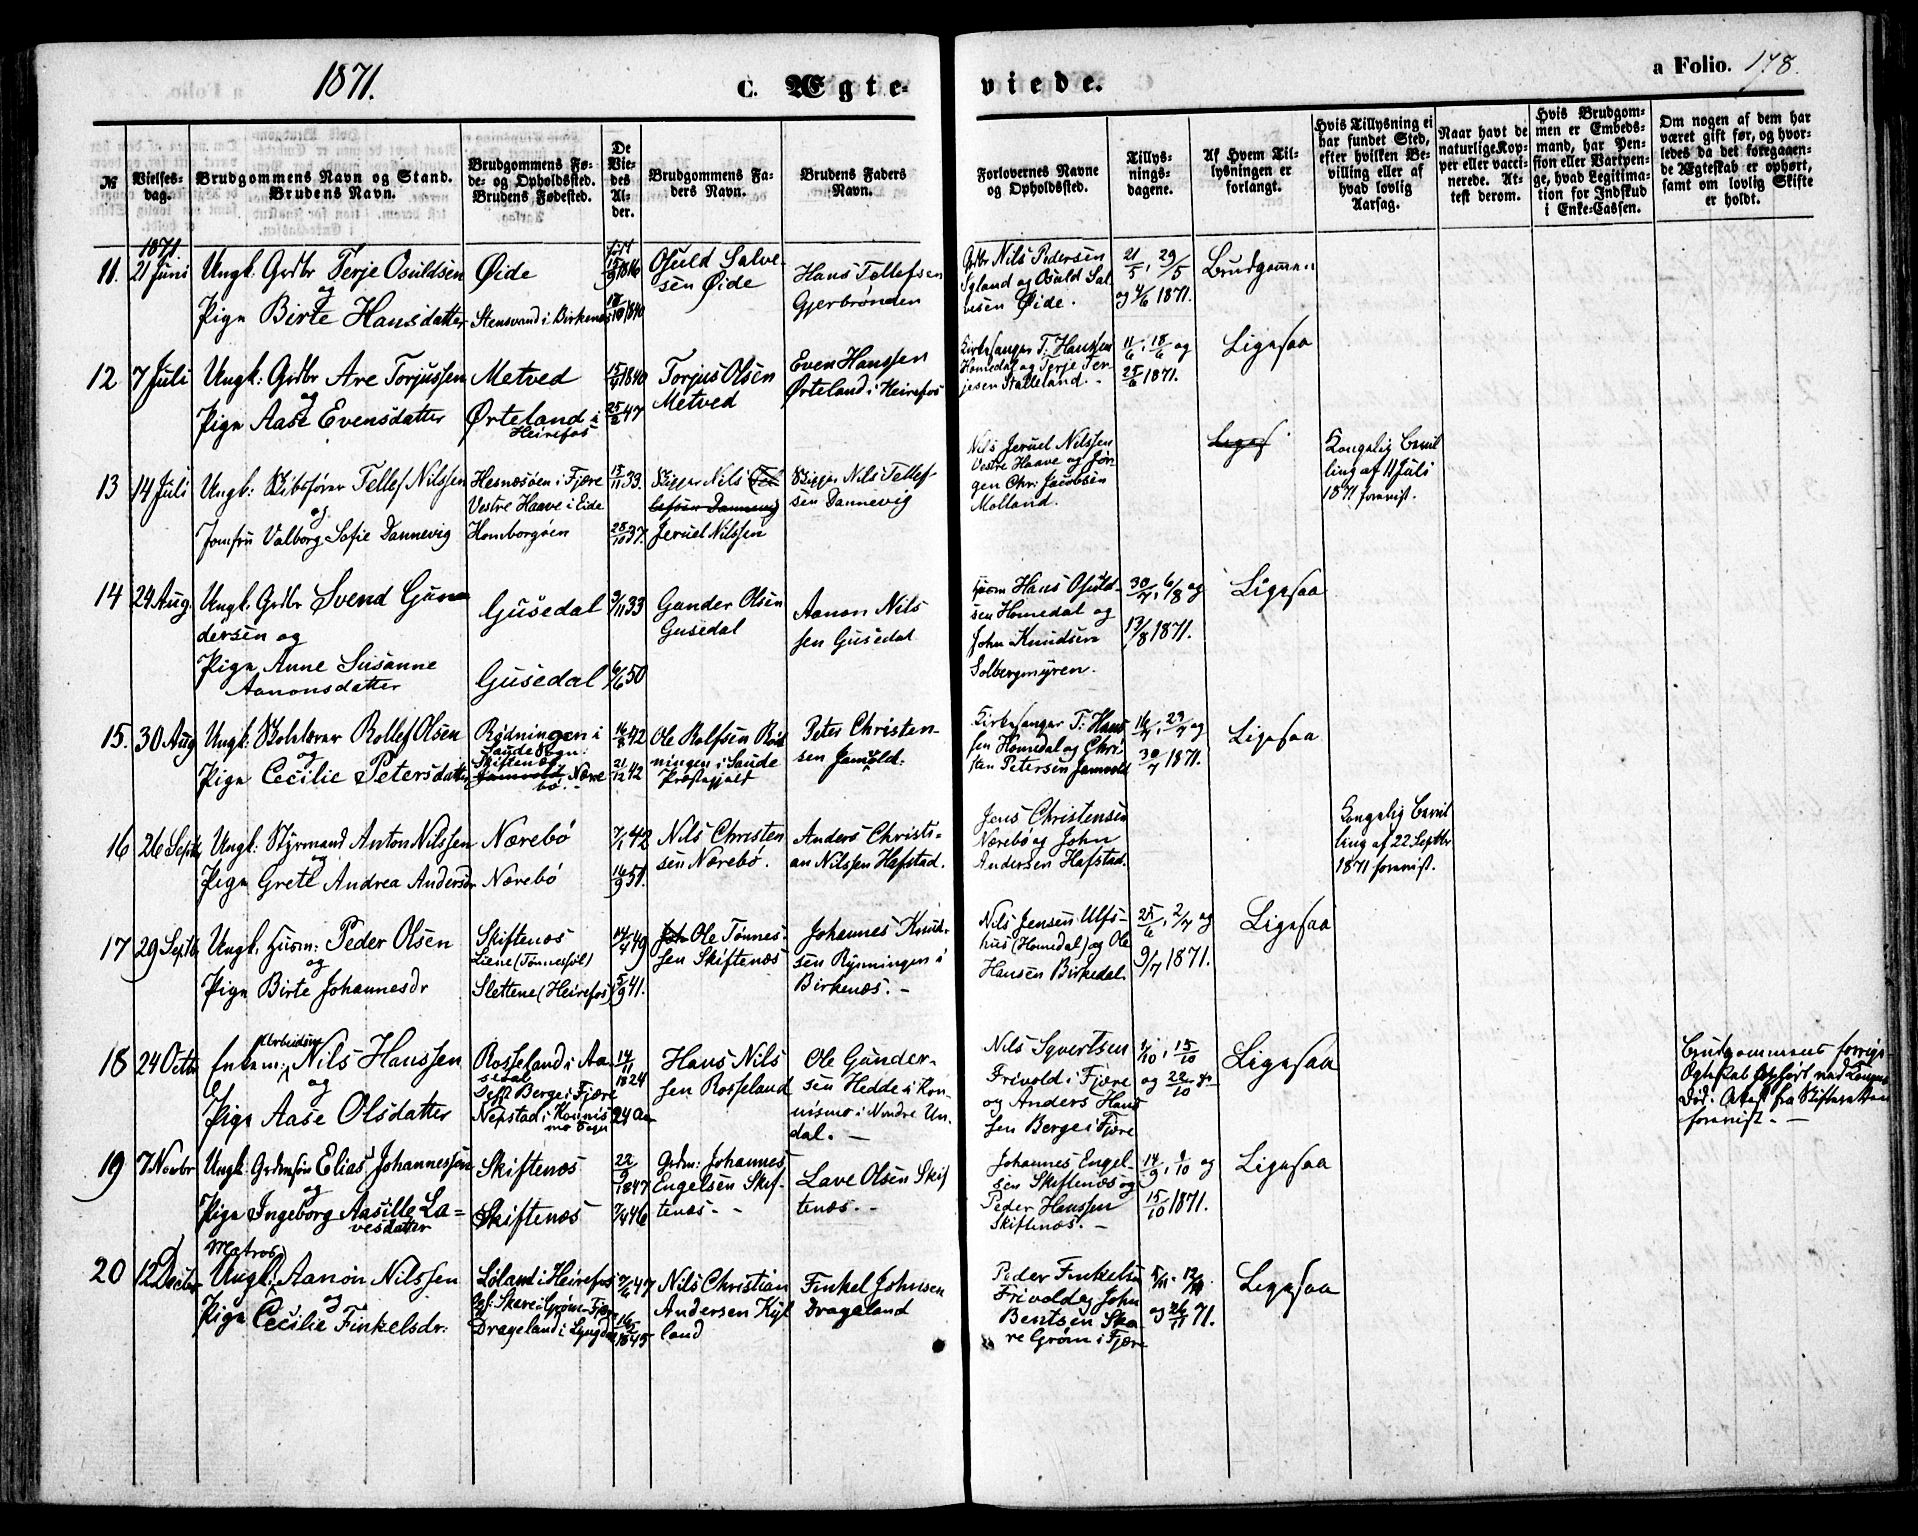 1871.
C. Ægte-
viede.
a Folio. 178.
№
Vielses-
dag.
Brudgommens Navn og Stand.
Brudens Navn.
Brudgommens Fø-
de- og Opholdssted.
Brudens Fødested.
De
Vie-
des
Al-
der.
Brudgommens Fa-
ders Navn.
Brudens Faders
Navn.
Forlovernes Navne
og Opholdssted.
Tillys-
nings-
dagene.
Af Hvem Til-
lysningen er
forlangt.
Hvis Tillysning ei
har fundet Sted,
efter hvilken Be-
villing eller af
hvad lovlig
Aarsag.
Naar havt de
naturlige Kop-
per eller vacci-
nerede. At-
test derom.
Hvis Brudgom-
men er Embeds-
mand, har Pen-
sion eller Vartpen-
ge, hvad Legitima-
tion for Indskud
i Enke-Cassen.
Om nogen af dem har
været gift før, og hvor-
ledes da det foregaaen-
de Ægteskab er ophørt,
samt om lovlig Skifte
er holdt.
1871
11. 21 Juni
Ungk: Grdbr Terje Osuldsen
og
Pige Birte Hansdatter
Øide
Stensvand i Birkenes
født
15/9 1816
1840
Osuld Salve-
sen Øide
Hans Tellefsen
Gjerbrønden
Grdbr Nils Pedersen
Igland og Osuld Sal
vesen Øide.
21/5, 29/5
og 4/6 1871.
Brudgommen
12 7 Juli
Ungk: Grdbr Are Torjussen
og
Pige Aase Evensdatter
Metved
Ørteland i
Heirefos
1840
25/2 47
Torjus Olsen
Metved
Even Hanssen
Ørteland i Heirefos
Kirkesanger T: Hanssen
Homedal og Terje Ter-
jesen Stalleland.
11/6, 18/6 og
25/6 1871.
Ligesaa
13 14 Juli
Ungk: Skibsfører Tellef Nilssen
og
Jomfru Valborg Sofie Dannevig
Hesnæsøen i Fjære
Vestre Haave i Eide
Homborgøen
15/11 33.
28/10 37.
Skipper Nils (Tel
lefsen Dannevig)
Jeruel Nilssen
Skipper Nils Tellef-
sen Dannevig
Nils Jeruel Nilssen
Vestre Haave og Jør-
gen Chr: Jacobsen
Molland.
Liges
Kongelig Bevil
ling af 11 Juli
1871 forevist.
14 24 Aug.
Ungk: Grdbr Svend Gun
dersen og
Pige Anne Susanne
Aanonsdatter
Gusedal
Gusedal
9/11 33
6/6 50
Gunder Olsen
Gusedal
Aanon Nils
sen Gusedal
Hans Osuld-
sen Homedal og
John Knudsen
Solbergmyren.
30/7, 6/8 og
13/8 1871.
Ligesaa
15. 30 Aug
Ungk: Skolelærer Rollef Olsen
og
Pige Cecilie Petersdatter
Rødningen i
Saude Sogn:
Skiftenæs
Jamvold, Nære
bø.
16/8 42
21/12 42
Ole Rolfsen Rød
ningen i Saude
Præstegjeld
Peter Christen-
sen Jamvold.
Kirkesanger T: Hans
sen Homedal og Chri
sten Petersen Jamvold
16/7, 23/7 og
30/7 1871.
Ligesaa
16 26 Septbr
Ungk: Styrmand Anton Nilssen
og
Pige Grete Andrea Andersdr
Nærebø
Nærebø
7/1 42
16/9 51.
Nils Christen
sen Nærebø.
Anders Christi-
an Nilssen Hafstad.
Jens Christensen
Nærebø og John
Andersen Hafstad.
Kongelig Bevil
ling af 22 Septbr
1871 forevist.
17 29 Septbr
Ungk: Husm: Peder Olsen
og
Pige Birte Johannesdr
Skiftenæs
Liene (Tønnessøl)
Slettene (Heirefos)
14/4 49
5/9 41.
Joh Ole Tønnes-
sen Skiftenæs
Johannes Knud-
sen Rynningen i
Birkenæs.
Nils Jensen Ulfs-
hus (Homedal) og Ole
Hansen Birkedal
25/6, 2/7 og
9/7 1871.
Ligesaa
18 24 Octbr
Arbeidsm
Enkem: Nils Hanssen
og
Pige Aase Olsdatter
Rosseland i Aa
seral
Berge i Fjære
Nepstad i Konnis
mo Sogn
14/11 1824
24 Aar
Hans Nils
sen Rosseland
Ole Gunder-
sen Hedde i Kon-
nismo i Nordre Un-
dal.
Nils Syvertsen
Frivold i Fjære
og Anders Hans
sen Berge i Fjære
1/10, 15/10
og 22/10
Ligesaa
Brudgommens forrige
Egteskab ophørt ved Konens
Død. Attest fra Skifteretten
forevist.
19 7 Novbr
Ungk: Grdmsøn Elias Johannessen
og
Pige Ingeborg Aasille La-
vesdatter
Skiftenæs
Skiftenæs
22/9 1847
7/4 46
Grdm: Johannes
Engelsen Skif-
tenæs.
Lave Olsen Skif
tenæs.
Johannes Engel-
sen Skiftenæs og
Peder Hanssen
Skiftenæs.
14/9, 8/10 og
15/10 1871.
Ligesaa
20 12 Decbr
Matros
Ungk: Aanon Nilssen
og
Pige Cecilie Finkelsdr:
Løland i Heirefos
Skare i Grøm Fjære
Drageland i Lyngdal
7/6 47
16/ 1845
Nils Christian
Andersen Kyl
land
Finkel Johnsen
Drageland
Peder Finkelsen
Frivold og John
Bentsen Ska-
re Grøm i Fjære
5/11, 12/11
og 26/11 71.
Ligesaa